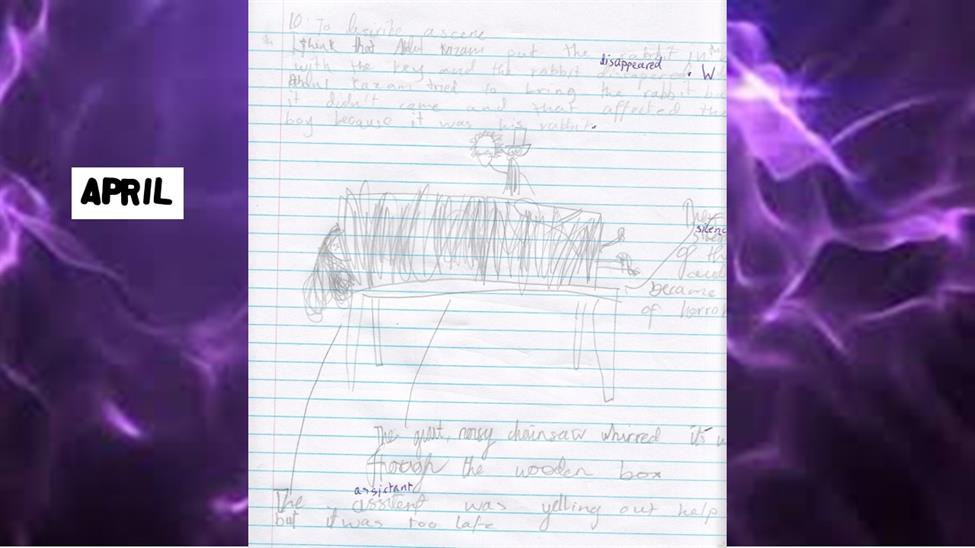 APRIL
10: To desiribe a scene
I think that Abdul Kazam put the rabbit in
disappeared
with the key and the rabbit . W
Abdul Kazam tried to bring the rabbit b
it didn't came and that affected the
boy because it was his rabbit.
silenc
of th
audi
became
of horro
The giant, noisy chainsaw whirred its w
though the wooden box
assistant
The assitent was yelling out help
but it was too late